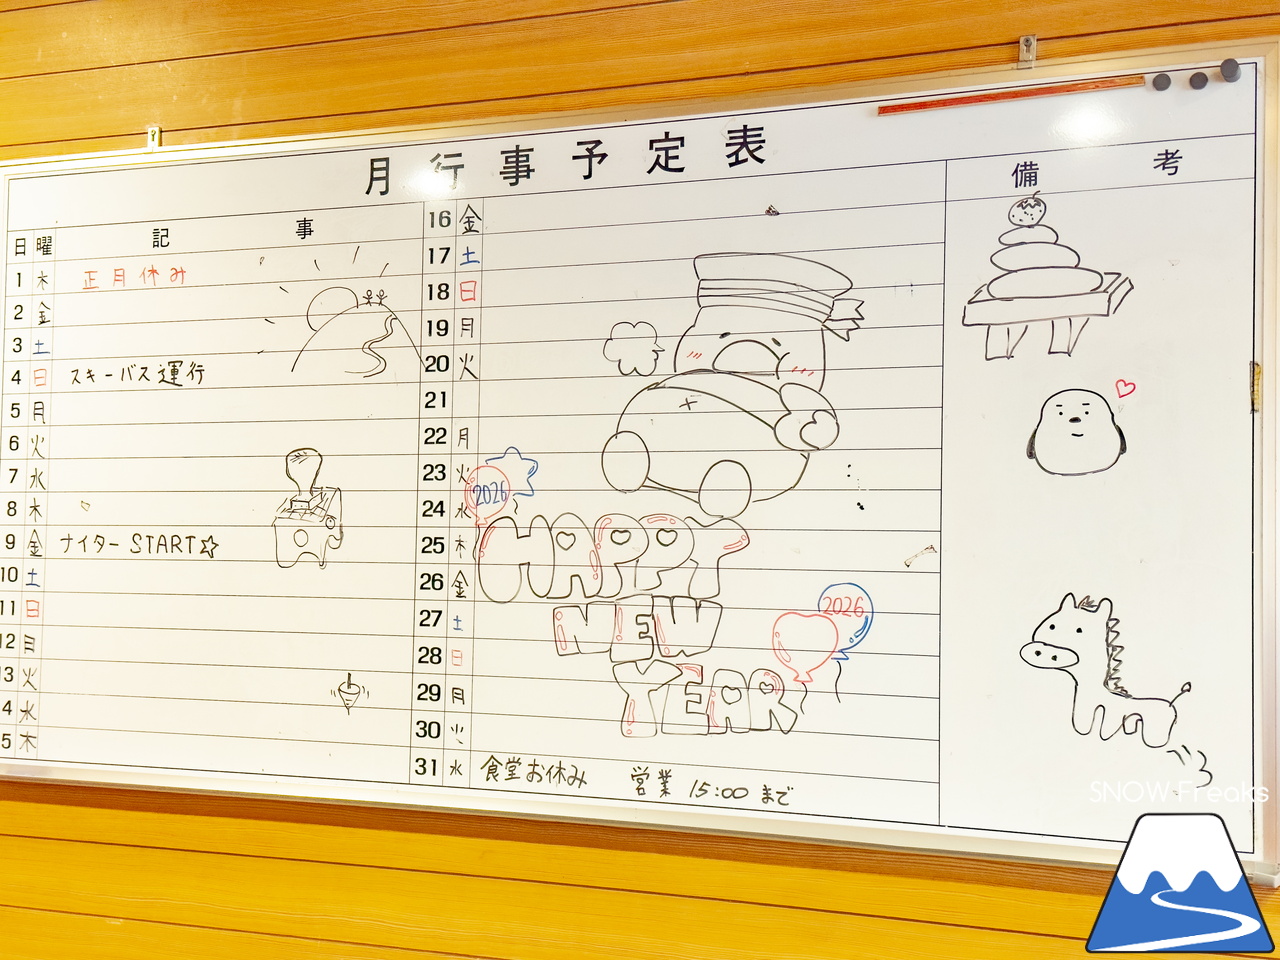 月行事予定表
日 曜 記事
1 木 正月休み
2 金
3 土
4 日 スキーバス運行
5 月
6 火
7 水
8 木
9 金 ナイター START☆
10 土
11 日
12 日
13 火
4 水
5 木
16 金
17 土
18 日
19 月
20 火
21
22 月
23 火
24 水
25 木
26 金
27 土
28 日
29 月
30 火
31 水 食堂お休み 営業 15:00 まで
2026
HAPPY
NEW
YEAR
2026
備考
SNOW Freaks